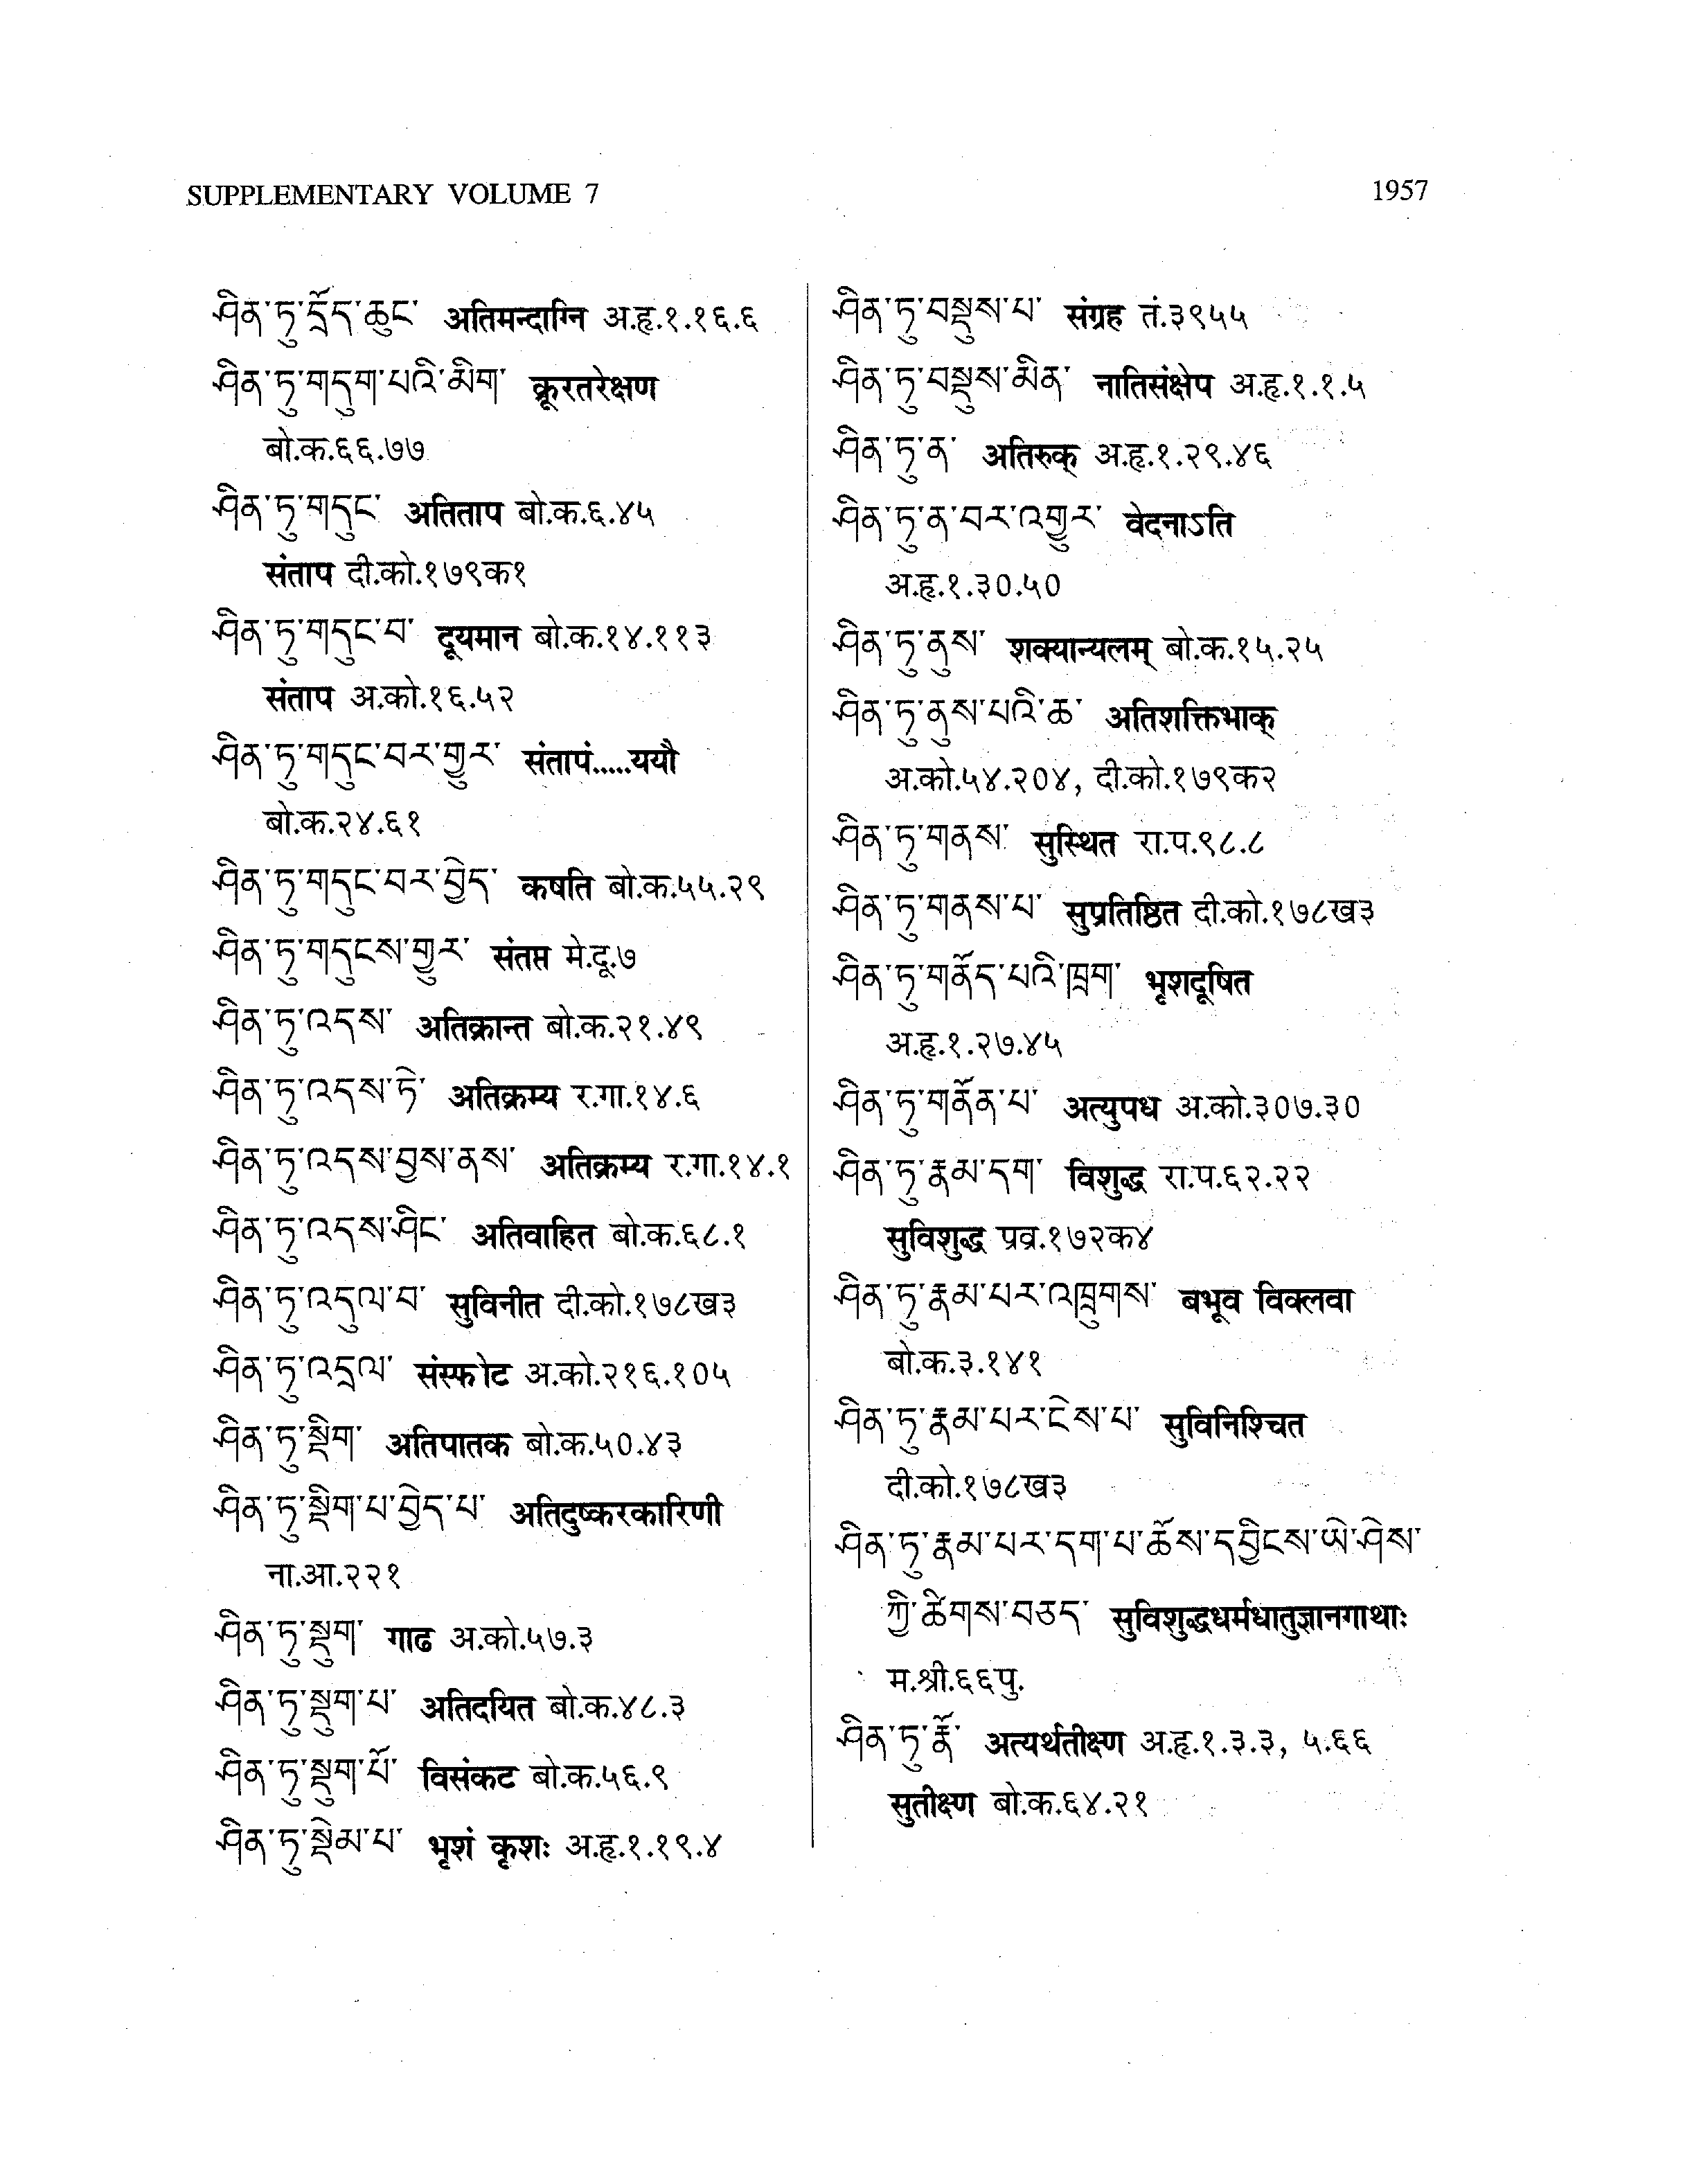 SUPPLEMENTARY VOLUME 7
1957
ཤིན་ཏུ་དྲོད་ཆུང་ अतिमन्दाग्नि अ.हृ.१.१६.६
ཤིན་ཏུ་གདུག་པའི་མིག་ क्रूरतरेक्षण
बो.क.६६.७७
ཤིན་ཏུ་གདུང་ अतिताप बो.क.६.४५
संताप दी.को.१७९क१
ཤིན་ཏུ་གདུང་བ་ दूयमान बो.क.१४.११३
संताप अ.को.१६.५२
ཤིན་ཏུ་གདུང་བར་གྱུར་ संतापं.....ययौ
बो.क.२४.६१
ཤིན་ཏུ་གདུང་བར་བྱེད་ कषति बो.क.५५.२९
ཤིན་ཏུ་གདུངས་གྱུར་ संतप्त मे.दू.७
ཤིན་ཏུ་འདས་ अतिक्रान्त बो.क.२१.४९
ཤིན་ཏུ་འདས་ཏེ་ अतिक्रम्य र.गा.१४.६
ཤིན་ཏུ་འདས་བྱས་ནས་ अतिक्रम्य र.गा.१४.१
ཤིན་ཏུ་འདས་ཤིང་ अतिवाहित बो.क.६८.१
ཤིན་ཏུ་འདུལ་བ་ सुविनीत दी.को.१७८ख३
ཤིན་ཏུ་འདྲལ་ संस्फोट अ.को.२१६.१०५
ཤིན་ཏུ་སྡིག་ अतिपातक बो.क.५०.४३
ཤིན་ཏུ་སྡིག་པ་བྱེད་པ་ अतिदुष्करकारिणी
ना.आ.२२१
ཤིན་ཏུ་སྡུག་ गाढ अ.को.५७.३
ཤིན་ཏུ་སྡུག་པ་ अतिदयित बो.क.४८.३
ཤིན་ཏུ་སྡུག་པོ་ विसंकट बो.क.५६.९
ཤིན་ཏུ་སྡེམ་པ་ भृशं कृशः अ.हृ.१.१९.४
ཤིན་ཏུ་བསྡུས་པ་ संग्रह तं.३९५५
ཤིན་ཏུ་བསྡུས་མིན་ नातिसंक्षेप अ.हृ.१.१.५
ཤིན་ཏུ་ན་ अतिरुक् अ.हृ.१.२९.४६
ཤིན་ཏུ་ན་བར་འགྱུར་ वेदनाऽति
अ.हृ.१.३०.५०
ཤིན་ཏུ་ནུས་ शक्यान्यलम् बो.क.१५.२५
ཤིན་ཏུ་ནུས་པའི་ཆ་ अतिशक्तिभाक्
अ.को.५४.२०४, दी.को.१७९क२
ཤིན་ཏུ་གནས་ सुस्थित रा.प.९८.८
ཤིན་ཏུ་གནས་པ་ सुप्रतिष्ठित दी.को.१७८ख३
ཤིན་ཏུ་གནོད་པའི་ཁྲག་ भृशदूषित
अ.हृ.१.२७.४५
ཤིན་ཏུ་གནོན་པ་ अत्युपध अ.को.३०७.३०
ཤིན་ཏུ་རྣམ་དག་ विशुद्ध रा.प.६२.२२
सुविशुद्ध प्रव्र.१७२क४
ཤིན་ཏུ་རྣམ་པར་འཁྲུགས་ बभूव विक्लवा
बो.क.३.१४१
ཤིན་ཏུ་རྣམ་པར་ངེས་པ་ सुविनिश्चित
दी.को.१७८ख३
ཤིན་ཏུ་རྣམ་པར་དག་པ་ཆོས་དབྱིངས་ཡེ་ཤེས་
ཀྱི་ཚིགས་བཅད་ सुविशुद्धधर्मधातुज्ञानगाथाः
म.श्री.६६पु.
ཤིན་ཏུ་རྣོ་ अत्यर्थतीक्ष्ण अ.हृ.१.३.३, ५.६६
सुतीक्ष्ण बो.क.६४.२१